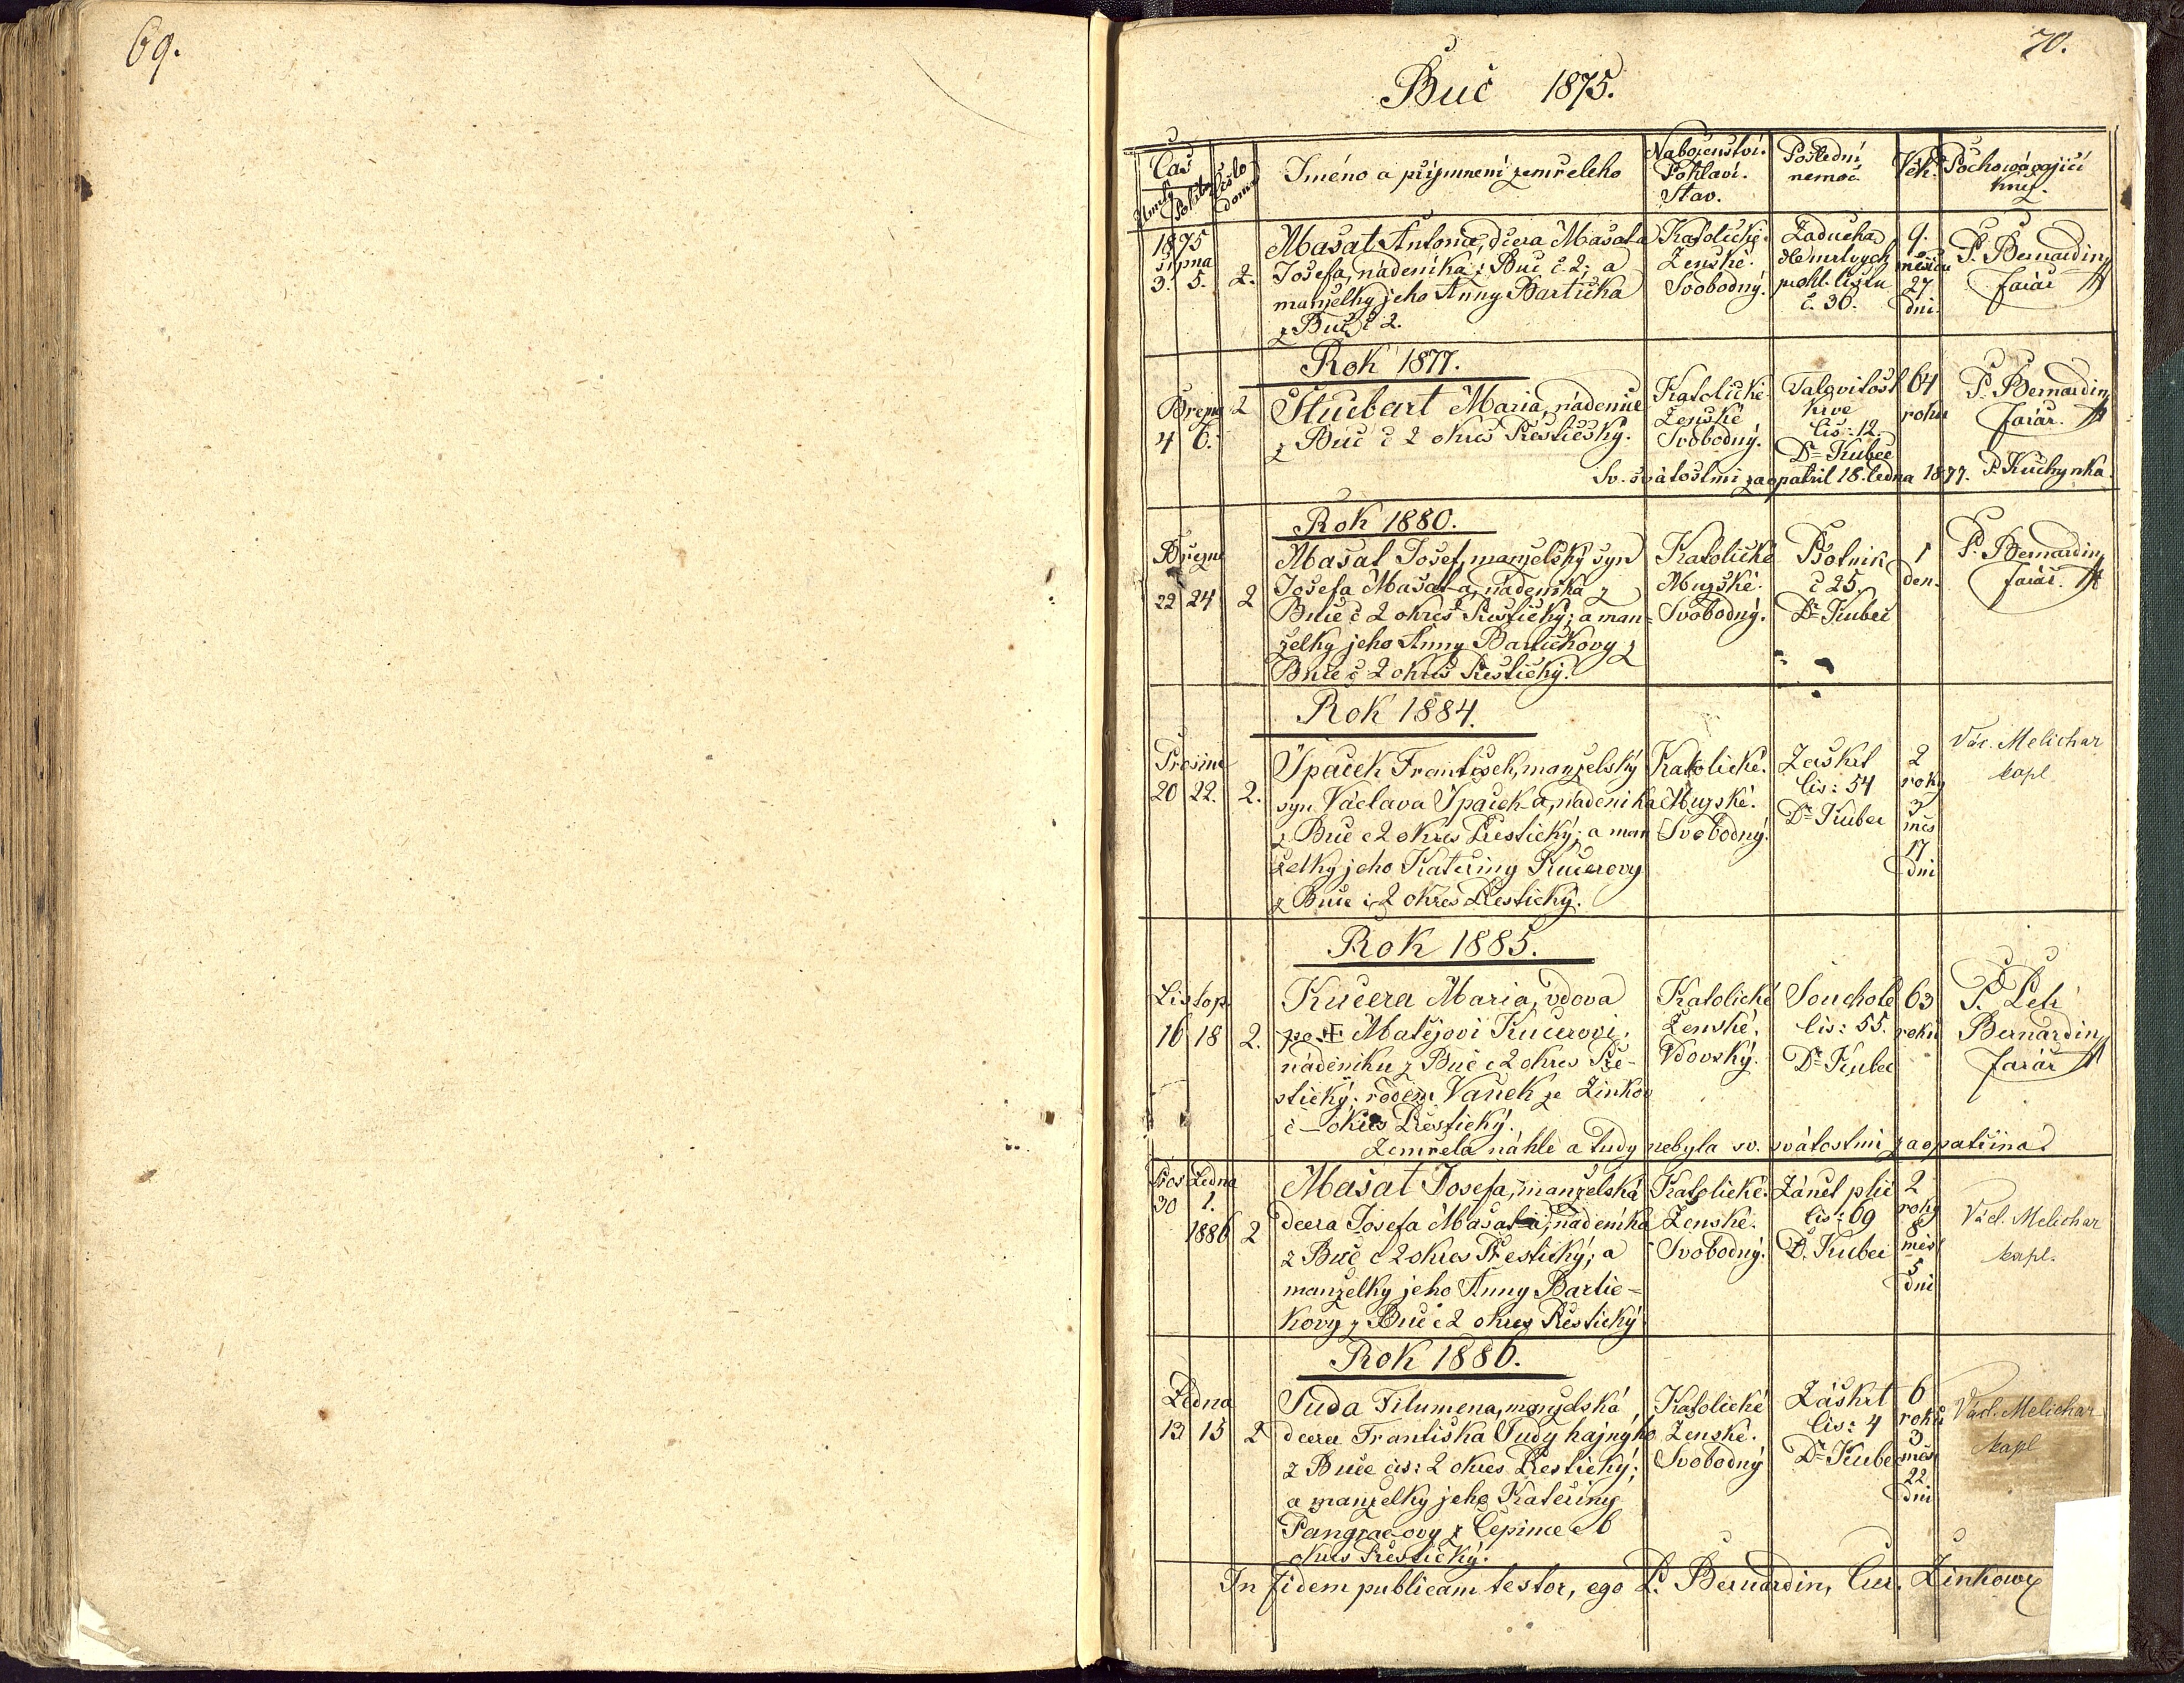 69.
70.
Buč 1875.
Čas
Číslo domu
Jméno a přijmnení zemřeleho
Naboženství. Pohlaví. Stav.
Poslední nemoc.
Věk.
Pochovávající kněz.
1875
srpna
3. 5. 2.
Mašat Antonie, dcera Mašata
Josefa, nádeníka z Buč č. 2; a
manželky jeho Anny Bartička
z Buč č 2.
Katolické.
Ženské.
Svobodný.
Zaducha
prohl. listu
č. 30.
9.
měsíců
27
dni.
P. Bernardin
farář
Rok 1877.
Března
4 6. 2
Stuebart Maria, nádenice
z Buč č 2 okres Přestický.
Katolické
Ženské
Svobodný.
krve
čis: 12.
Dr Kubec
64
roků
P. Bernardin
farář.
Sv. svátostmi zaopatřil 18. ledna 1877. P. Kuchynka.
Rok 1880.
Března
22 24 2
Mašat Josef, manželský syn
Josefa Mašat-a, nádeníka z
Buče č 2 okres Přestický; a man=
želky jeho Anny Bartičkovy z
Buče č 2 okres Přestický.
Katolické
Mužské.
Svobodný.
Psotnik
č 25.
Dr Kubec
1
den.
P. Bernardin
farář.
Rok 1884.
Prosince
20 22. 2.
Špaček František, manželský
syn Václava Špaček-a, nádeníka
z Buč č 2 okres Přestický; a man
želky jeho Kateřiny Kučerovy
z Buče č 2 okres Přestický.
Katolické.
Mužské.
Svobodný.
Zaškrt
čis: 54
Dr Kubec
2
roky
3
měs
17
dni
Vác. Melichar
kapl.
Rok 1885.
Listop.
16 18 2.
Kučera Maria, vdova
po Ɨ Matějovi Kučerovi,
nádeníku z Buč č 2 okres Pře-
stický; rodem Vaněk ze Žinkov
č — okres Přestický.
Katolické
Ženské.
Vdovský.
Souchotě
čis: 55.
Dr Kubec
63
roků
P. Petr
Bernardin
farář
Zemřela náhle a tudy nebyla sv. svátostmi zaopatřina
Pros Ledna
30 1.
1886 2
Mašat Josefa, manželská
dcera Josefa Mašat-a, nádeníka
z Buč č 2 okres Přestický; a
manželky jeho Anny Bartič=
kovy z Buč č 2 okres Přestický
Katolické.
Ženské.
Svobodný.
Zánět plic
čis: 69
D. Kubec
2
roky
8
měs
5
dni
Václ. Melichar
kapl.
Rok 1886.
Ledna
13 15 2
Suda Filumena, manželská
dcera Františka Sudy hajného
z Buče čis: 2 okres Přestický;
a manželky jeho Kateřiny
Pangrac-ovy z Čepince č 6
okres Přestický.
Katolické
Ženské.
Svobodný
Záškrt
čis: 4
Dr Kubec
6
roků
3
měs
22
dni
Václ. Melichar
kapl
In fidem publicam testor, ego P. Bernardin, Cur. Žinkowy